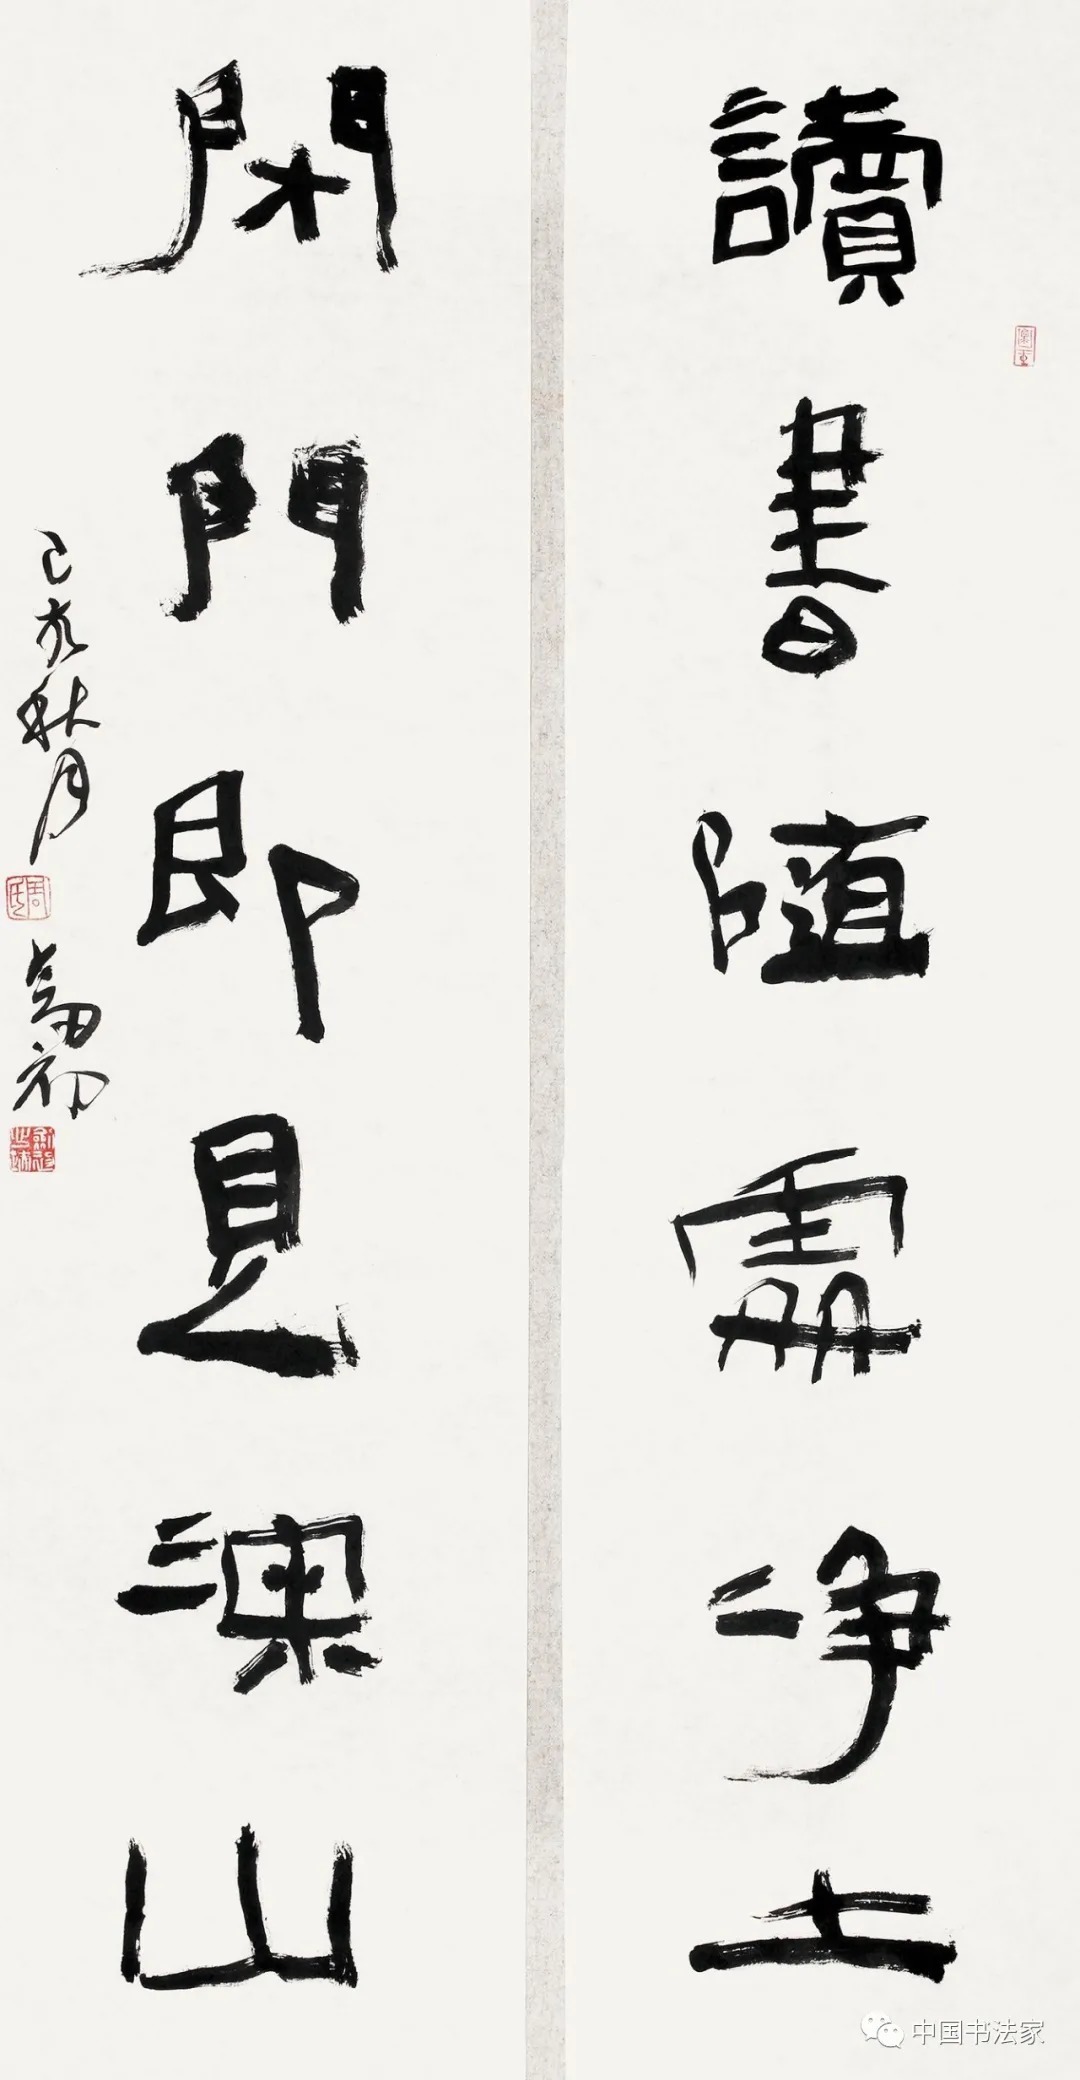 讀書隨處净土
閉門即見深山
己亥秋月
劍初
周氏
中国书法家